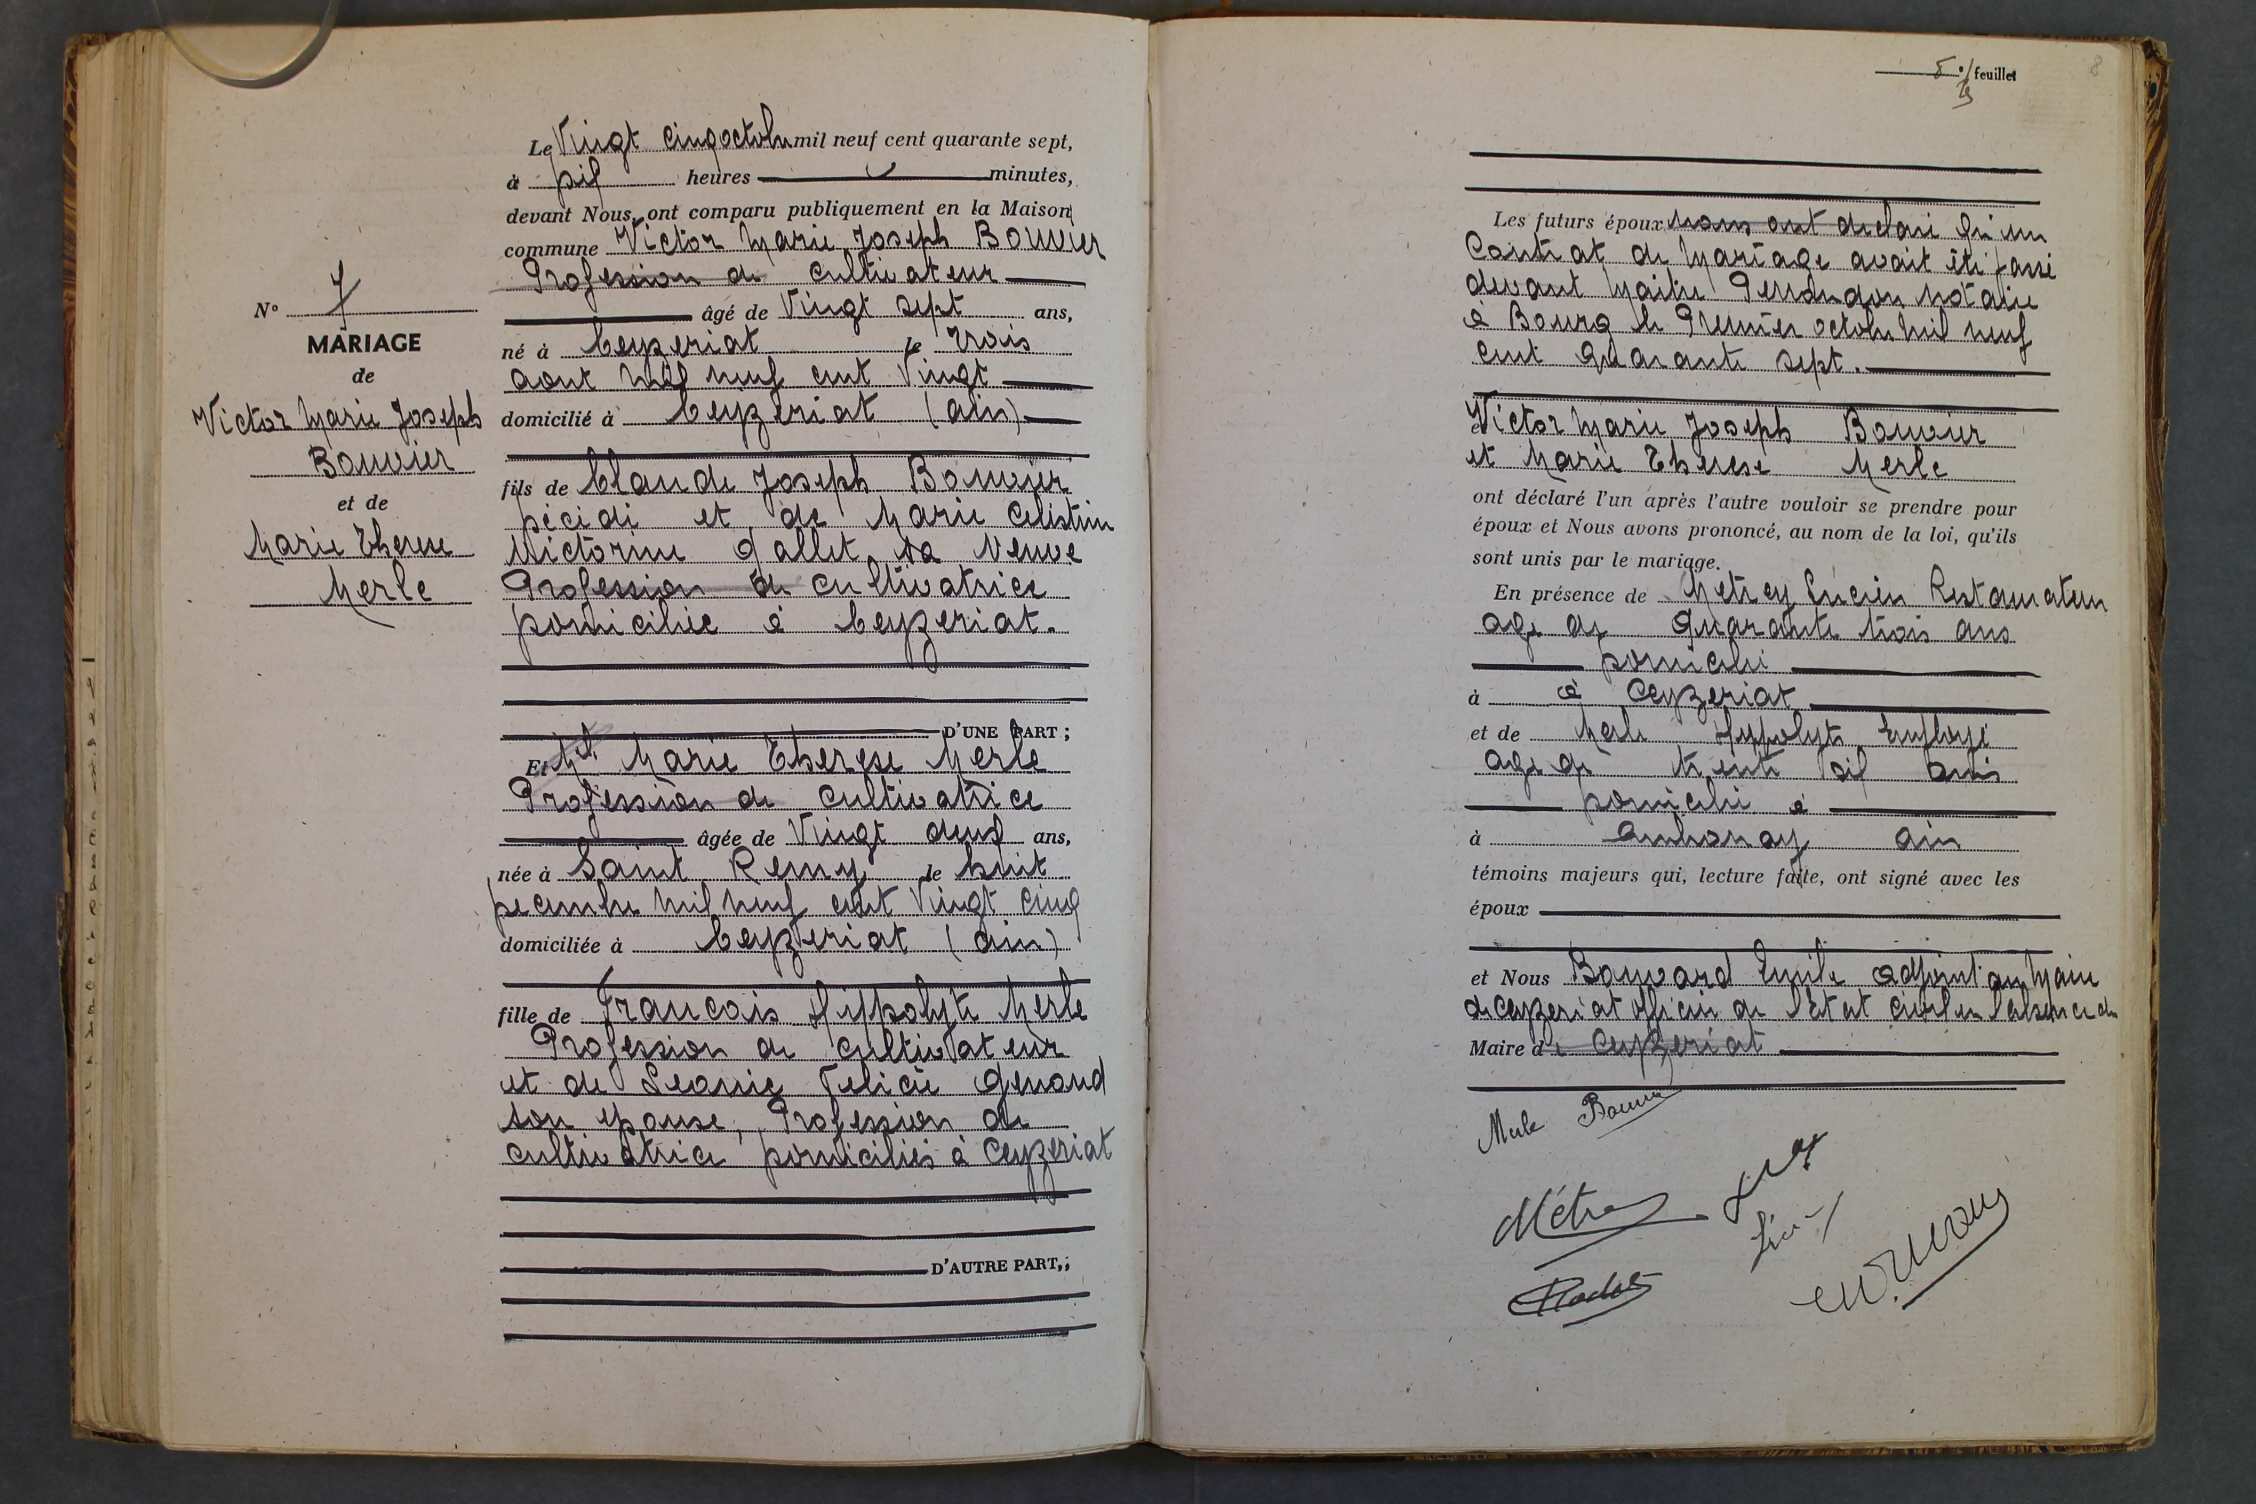 N° 7
MARIAGE
de
Victor Marie Joseph
Bouvier
et de
Marie Therese
Merle
Le Vingt cinq octobre mil neuf cent quarante sept,
à heures minutes,
devant Nous, ont comparu publiquement en la Maison
commune Victor Marie Joseph Bouvier
Profession de cultivateur
âgé de Vingt sept ans,
né à Ceyzeriat le trois
aout mil neuf cent Vingt
domicilié à Ceyzeriat (ain)
fils de Claude Joseph Bouvier
décidé et de Marie Celistine
Victorine Gallet sa Veuve
Profession de cultivatrice
domiciliée à Ceyzeriat.
D'UNE PART ;
Et Mlle Marie Therese Merle
Profession de cultivatrice
âgée de Vingt deux ans,
née à Saint Remy le huit
Decembre mil neuf cent Vingt cinq
domiciliée à Ceyzeriat (ain)
fille de Francois Hippolyte Merle
Profession de cultivateur
et de Leonie Felicie Genoud
son epouse, Profession de
cultivatrice domiciliés à Ceyzeriat
D'AUTRE PART,;
5e feuillet
8
Les futurs époux nous ont declaré qu'un
Contrat de Mariage avait été passé
devant Maitre notaire
à Bourg le Premier octobre mil neuf
cent quarante sept.
Victor Marie Joseph Bouvier
et Marie Therese Merle
ont déclaré l'un après l'autre vouloir se prendre pour
époux et Nous avons prononcé, au nom de la loi, qu'ils
sont unis par le mariage.
En présence de Metrey Lucien Restaurateur
age de Quarante trois ans
domicilie
à à Ceyzeriat
et de Merle Hyppolyte Employé
age de trente six ans
domicilie à
à Ambonay ain
témoins majeurs qui, lecture faite, ont signé avec les
époux
et Nous Bouvard Emile adjoint au Maire
de Ceyzeriat officier de l'Etat civil en l'absence du
Maire de Ceyzeriat
Merle Bouvier